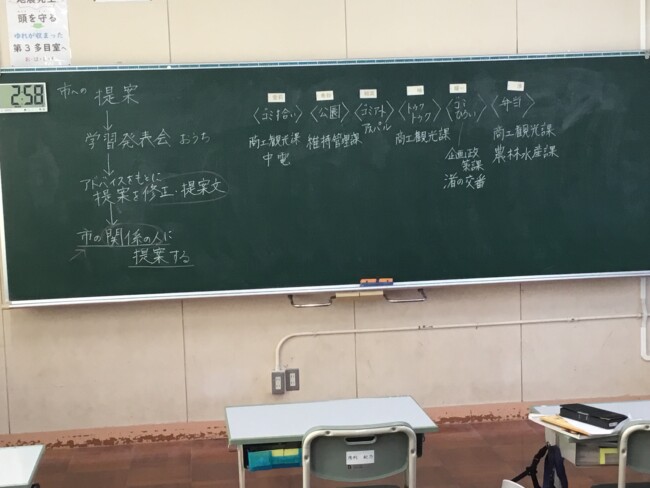 頭を守る
ゆれが収まった
第3多目室へ
2:58
市への 提案
学習発表会 おうち
アドバイスをもとに
提案を修正・提案文
市の関係の人に
提案する
〈ゴミ拾い〉
商工観光課
中電
〈公園〉
維持管理課
〈ゴミアート〉
アスパル
〈トゥクトゥク〉
商工観光課
〈ゴミひろい〉
企画政策課
渚の交番
〈弁当〉
商工観光課
農林水産課